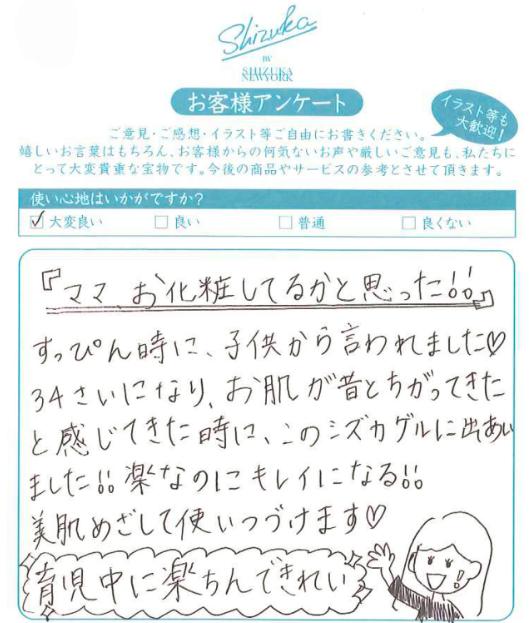 Shizuka
BY
SHIZUKA
NEWYORK
お客様アンケート
イラスト等も
大歓迎!
ご意見・ご感想・イラスト等ご自由にお書きください。
嬉しいお言葉はもちろん、お客様からの何気ないお声や厳しいご意見も、私たちに
とって大変貴重な宝物です。今後の商品やサービスの参考とさせて頂きます。
使い心地はいかがですか?
大変良い 良い 普通 良くない
『ママ、お化粧してるかと思った!!』
すっぴん時に、子供から言われました♡
34さいになり、お肌が昔とちがってきた
と感じてきた時に、このシズカゲルに出あい
ました!!楽なのにキレイになる!!
美肌めざして使いつづけます♡
育児中に楽ちんできれい